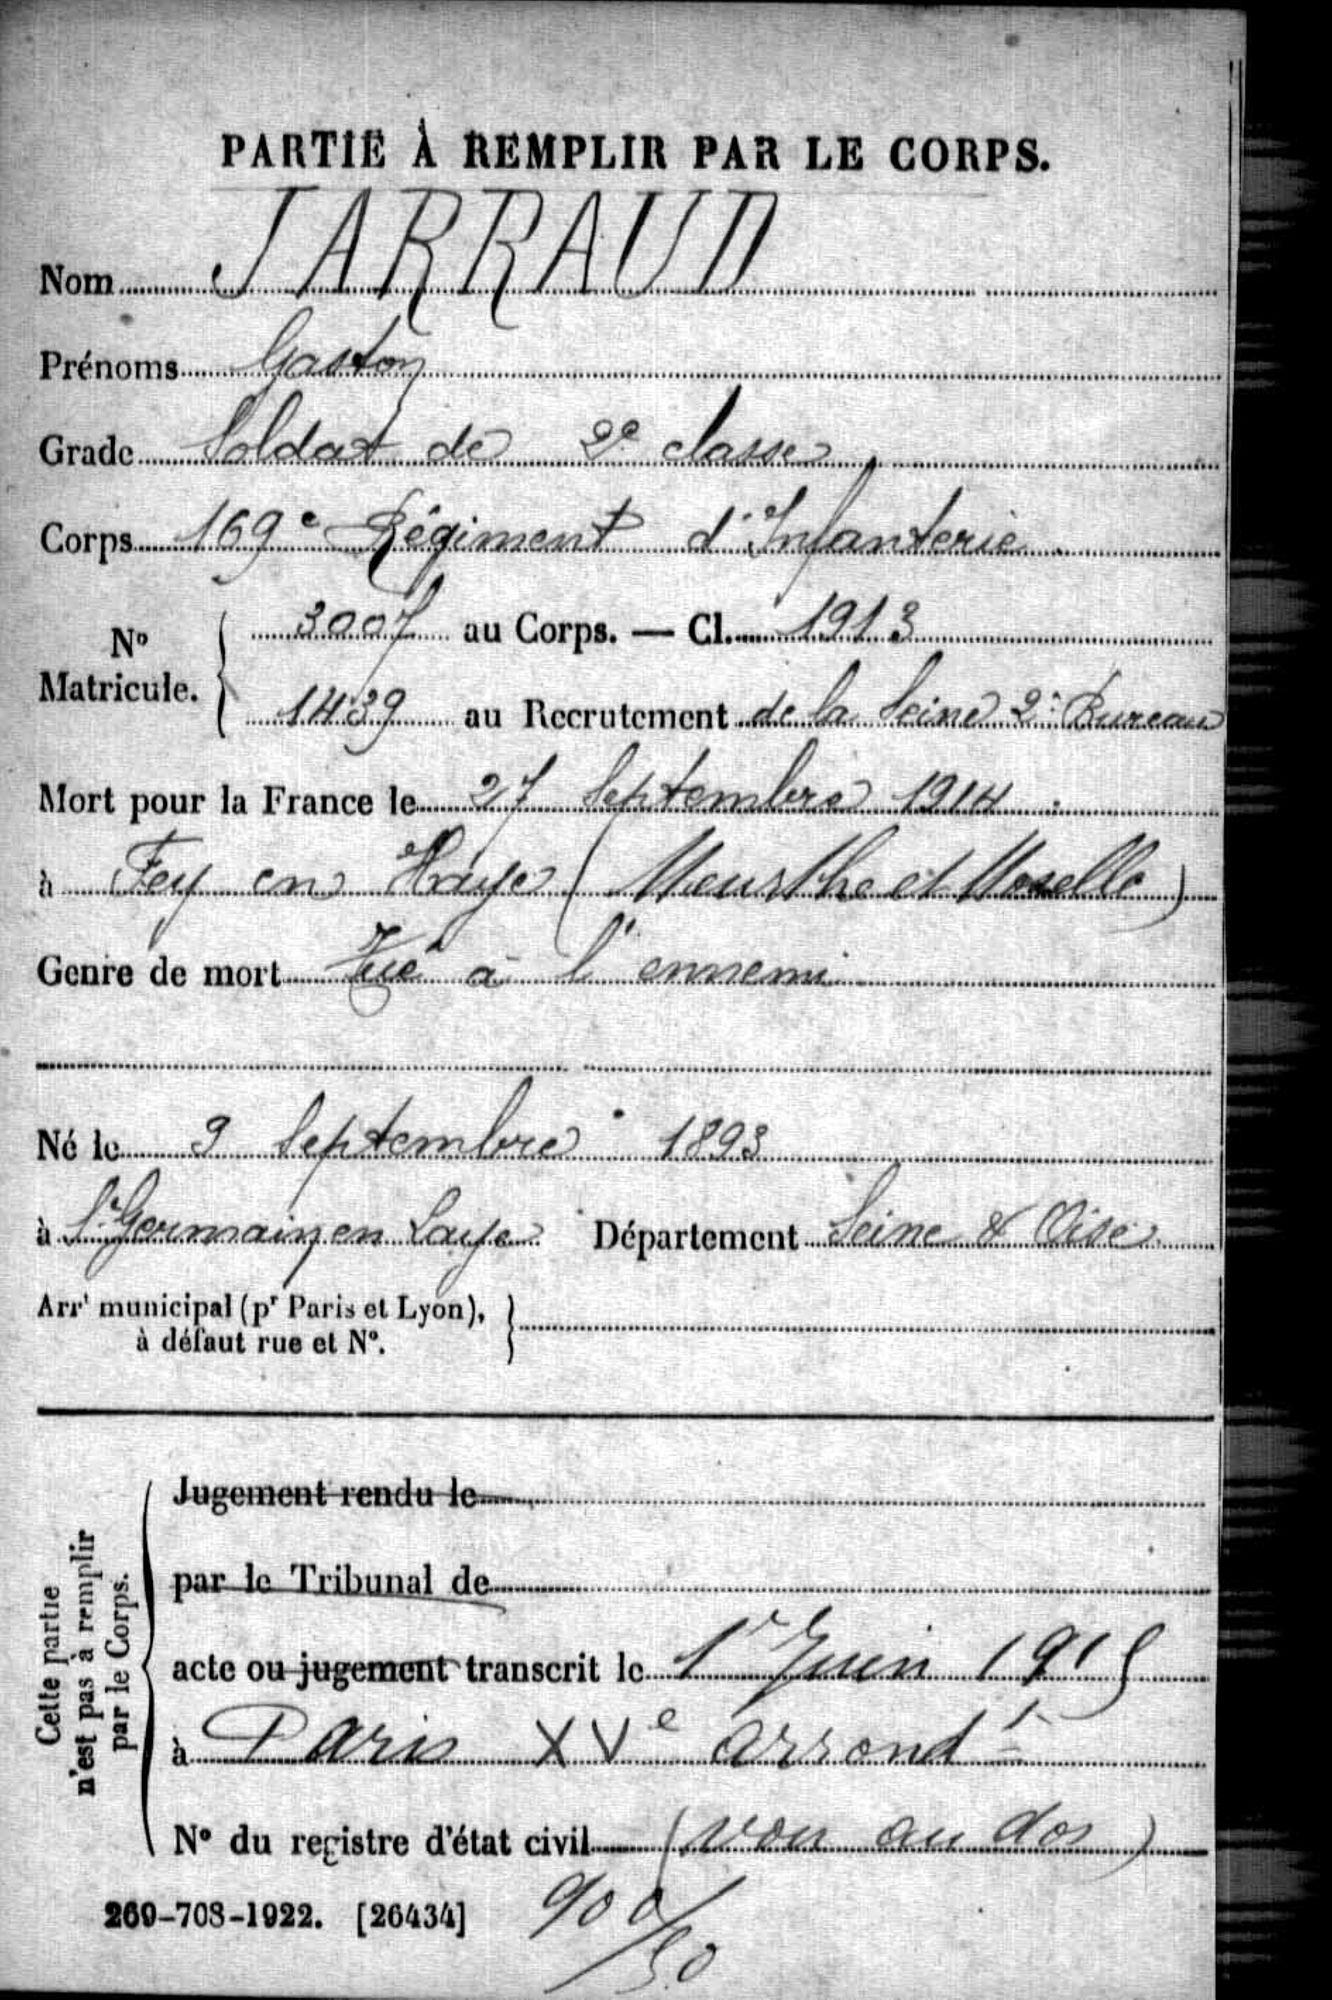 PARTIE À REMPLIR PAR LE CORPS.
Nom JARRAUD
Prénoms Gaston
Grade Soldat de 2e classe
Corps 169e Régiment d'Infanterie
No Matricule. 3007 au Corps. — Cl. 1913
1439 au Recrutement de la Seine 2e Bureau
Mort pour la France le 27 Septembre 1914
à Fey en Haye (Meurthe et Moselle)
Genre de mort Tué à l'ennemi
Né le 9 Septembre 1893
à St Germain en Laye Département Seine & Oise
Arrt municipal (pr Paris et Lyon),
à défaut rue et No.
Cette partie
n'est pas à remplir
par le Corps.
Jugement rendu le
par le Tribunal de
acte ou jugement transcrit le 1r Juin 1915
à Paris XVe arrondt
No du registre d'état civil (voir au dos)
269-708-1922. [26434] 900/50